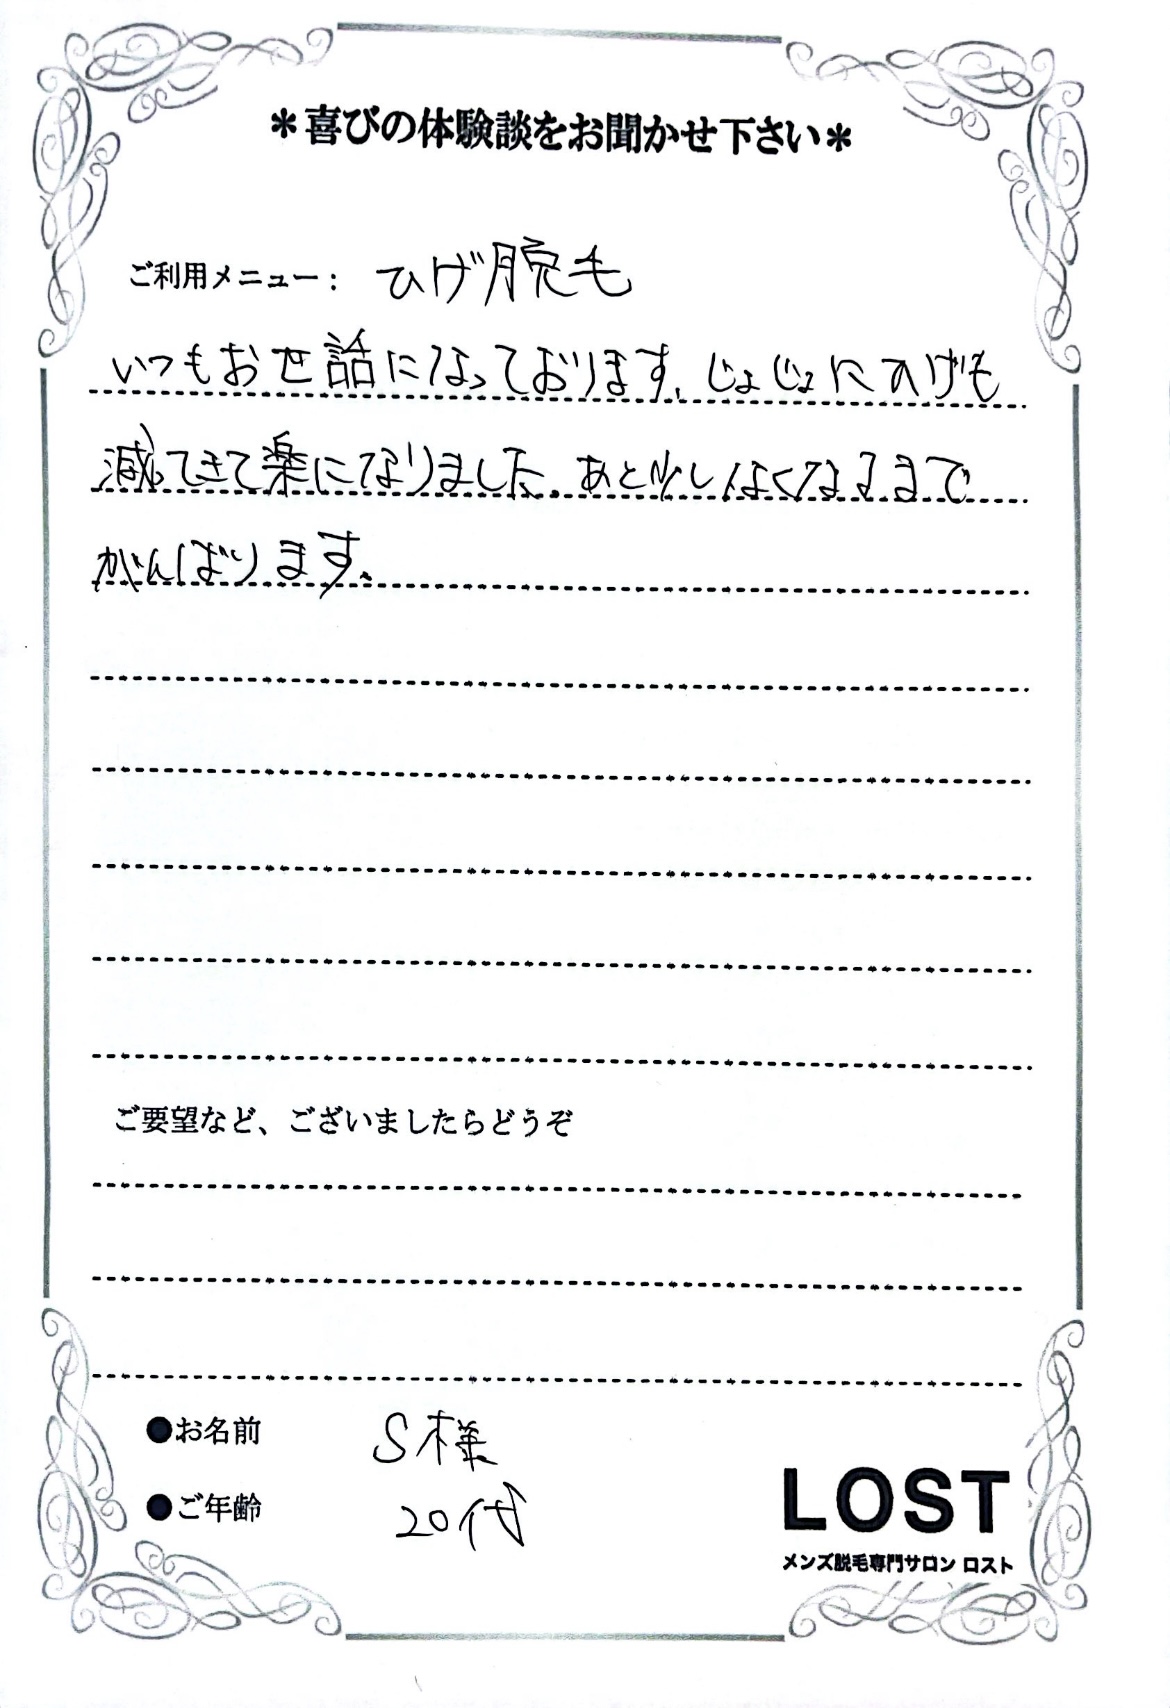 ＊喜びの体験談をお聞かせ下さい＊
ご利用メニュー： ひげ脱毛
いつもお世話になっております。じょじょにひげも
減ってきて楽になりました。あと少しなくなるまで
がんばります。
ご要望など、ございましたらどうぞ
●お名前 S様
●ご年齢 20代
LOST
メンズ脱毛専門サロン ロスト